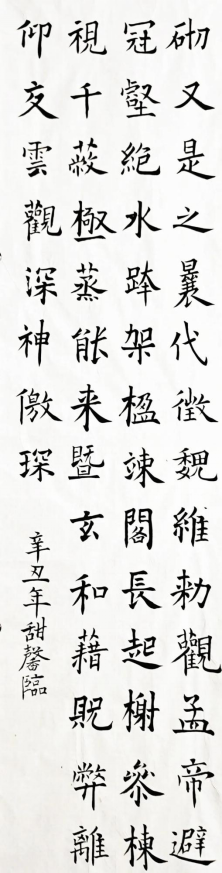 砌又是之曩代徵魏維勑觀孟帝避
冠壑絕水跨架楹竦閣長起榭參棟
視千蔽極蒸能来暨玄和藉貺弊離
仰交雲觀深神儌琛
辛丑年甜馨臨